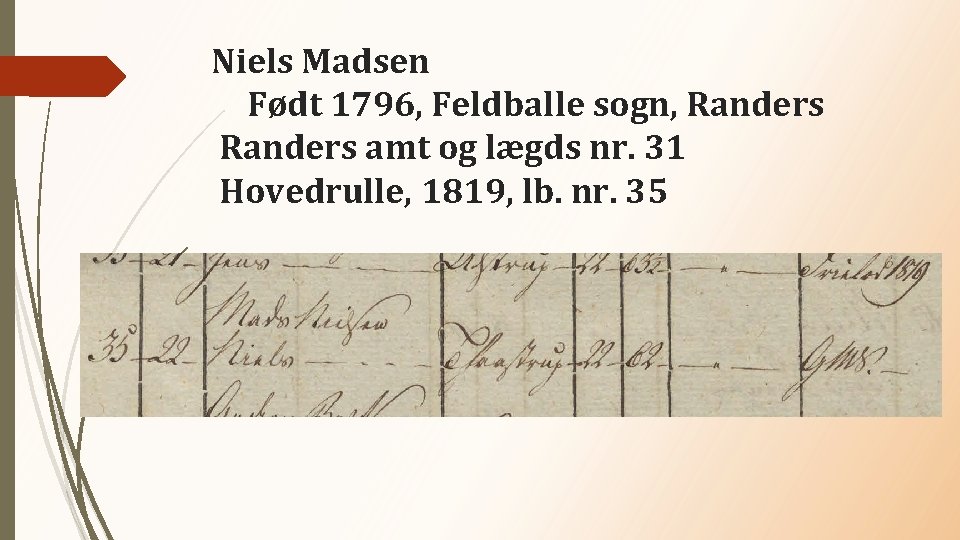 Niels Madsen
Født 1796, Feldballe sogn, Randers
Randers amt og lægds nr. 31
Hovedrulle, 1819, lb. nr. 35
21 Jens — — Astrup 22 63½ — " — Frilod 1819
Mads Nielsen
35 22 Niels — — Thaastrup 22 62 — " — GMS.
Anders